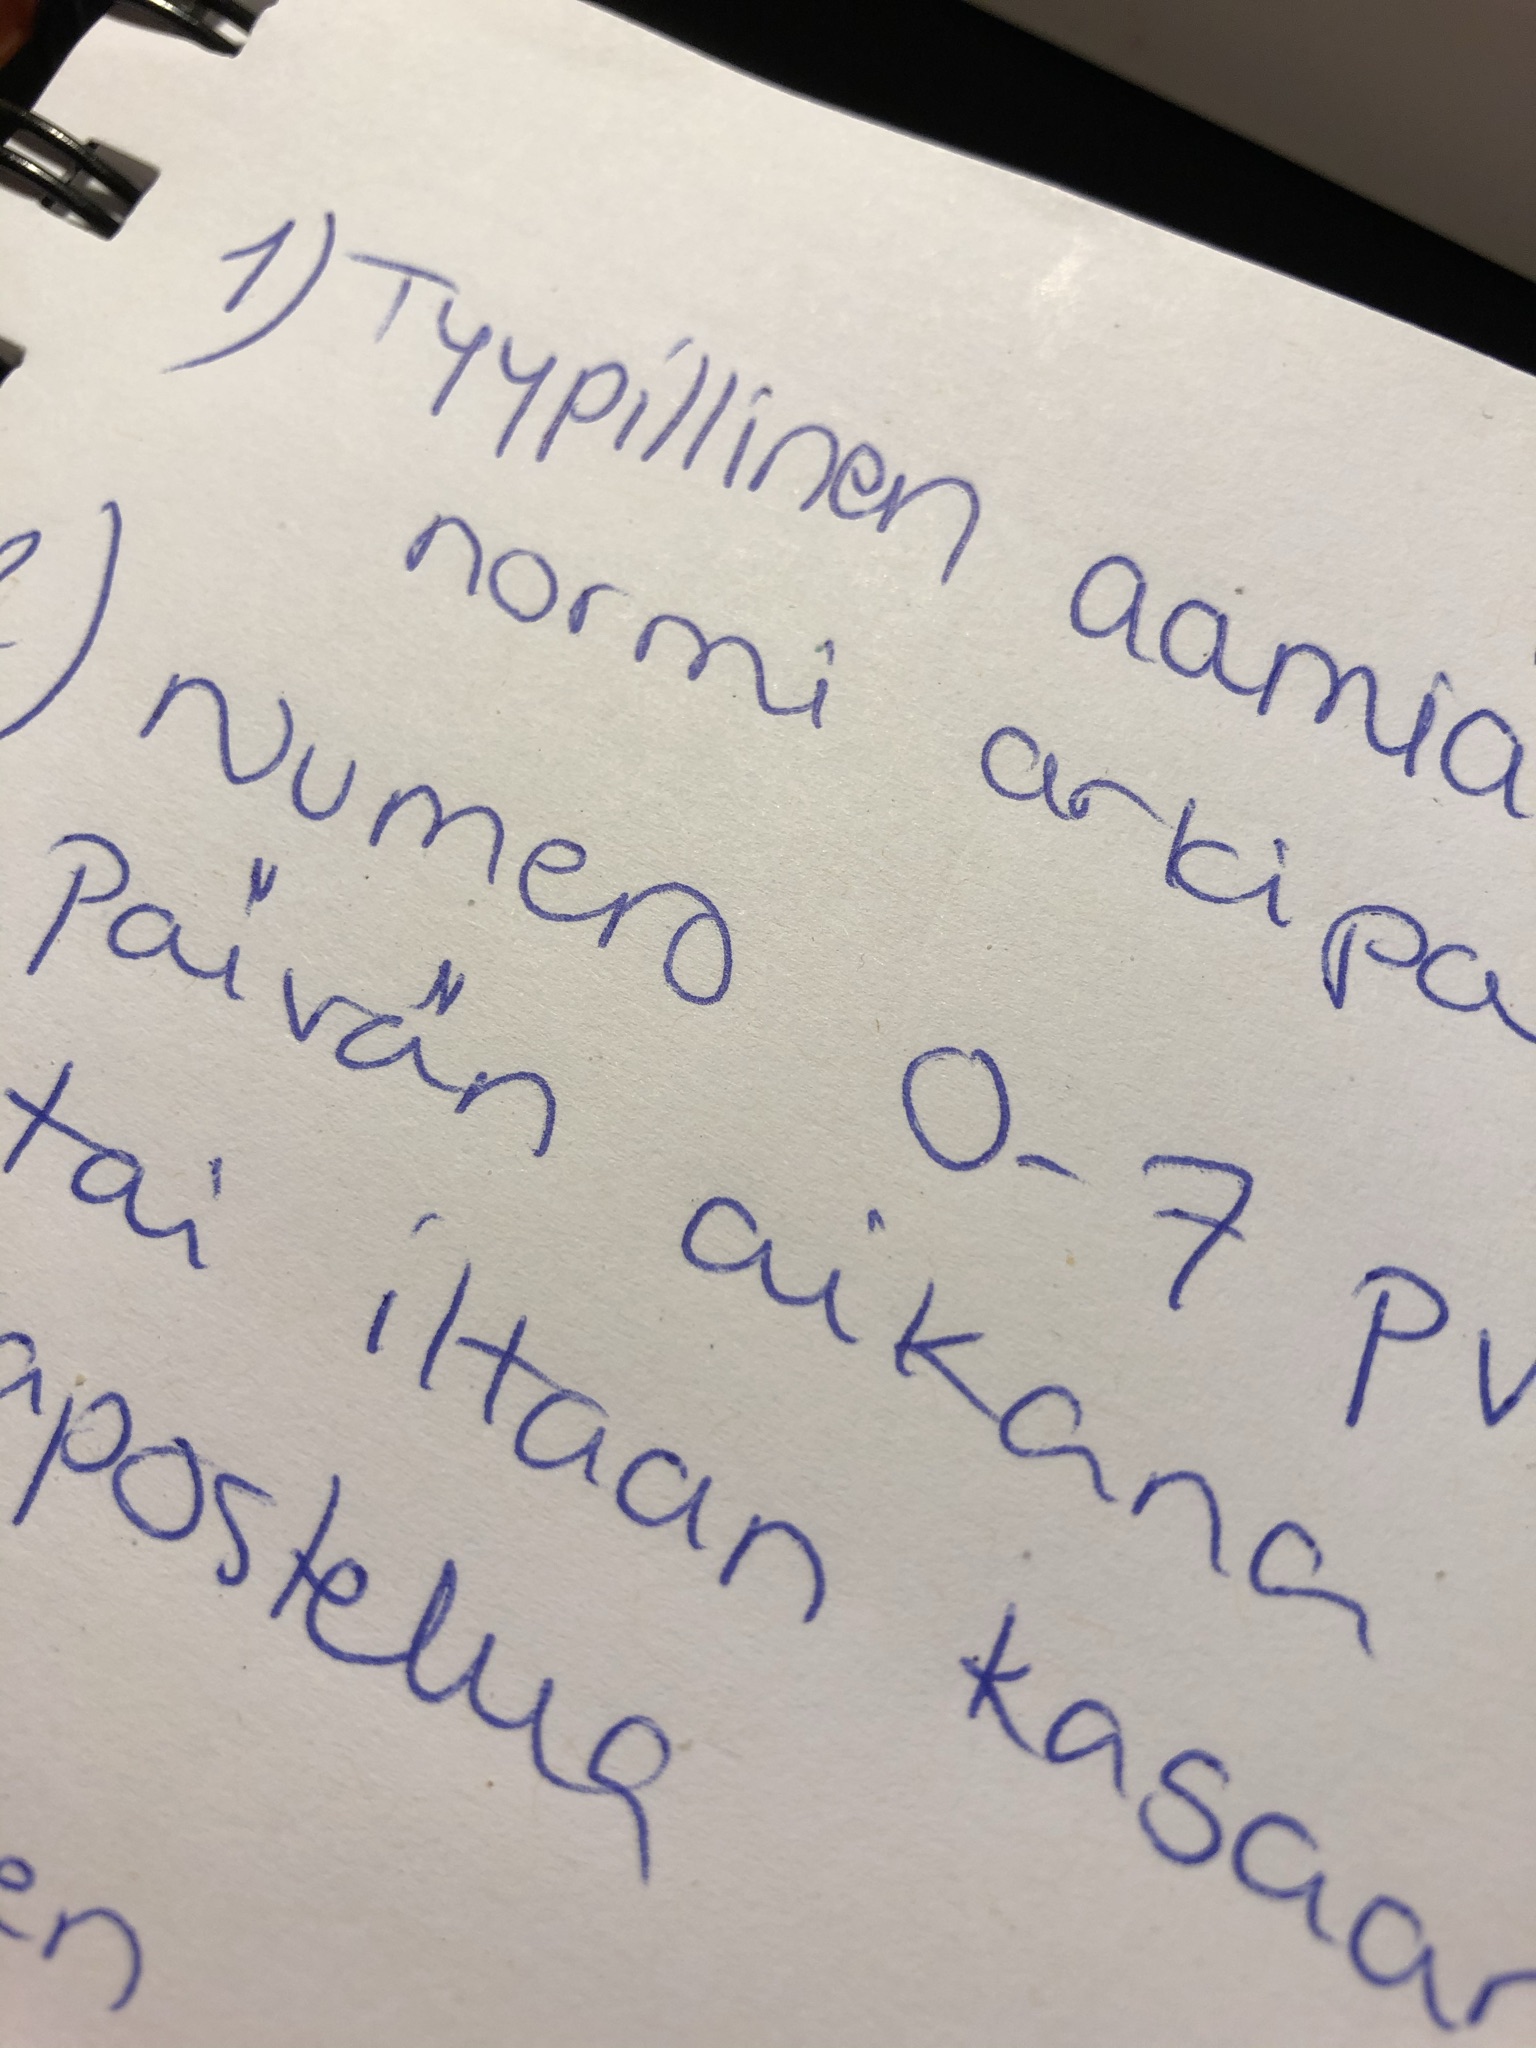 1) Tyypillinen aamia
normi arkipä
2) Numero 0-7 pv
Päivän aikana
tai iltaan kasaan
apostelua
en